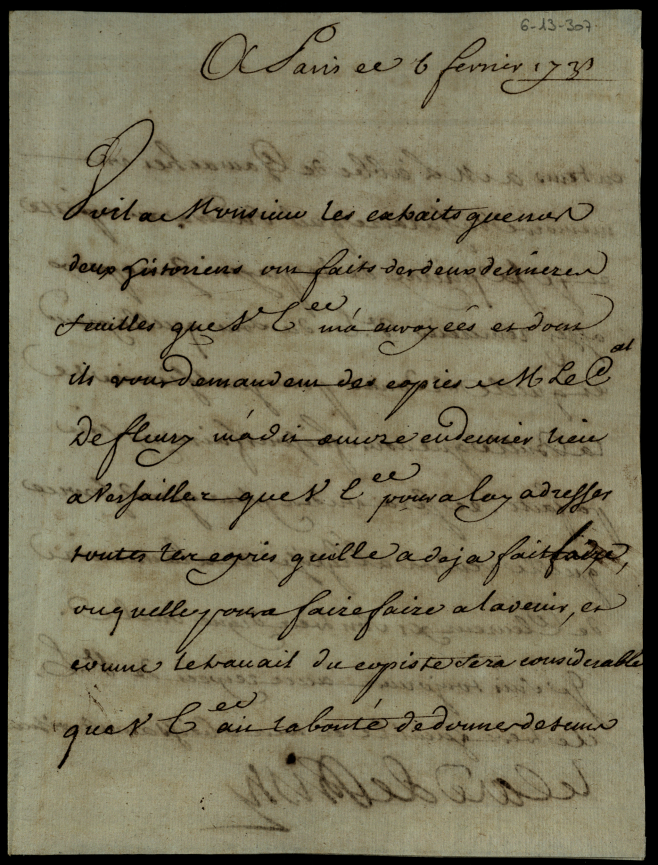 6-13-307-
A Paris ce 6 fevrier 1731
Voila Monsieur les extraits que nos
deux historiens ont faits des deux dernieres
feuilles que V. E.ce m'a envoyées et dont
ils vous demandent des copies M Le C.al
De fleury m'a dit encore en dernier lieu
a Versailles que V E.ce pouroit luy adresser
toutes les copies qu'elle a deja fait faire,
ou quelle poura faire faire a l'avenir, et
comme le travail du copiste sera considerable
que V E.ce ait la bonté de donner de tems